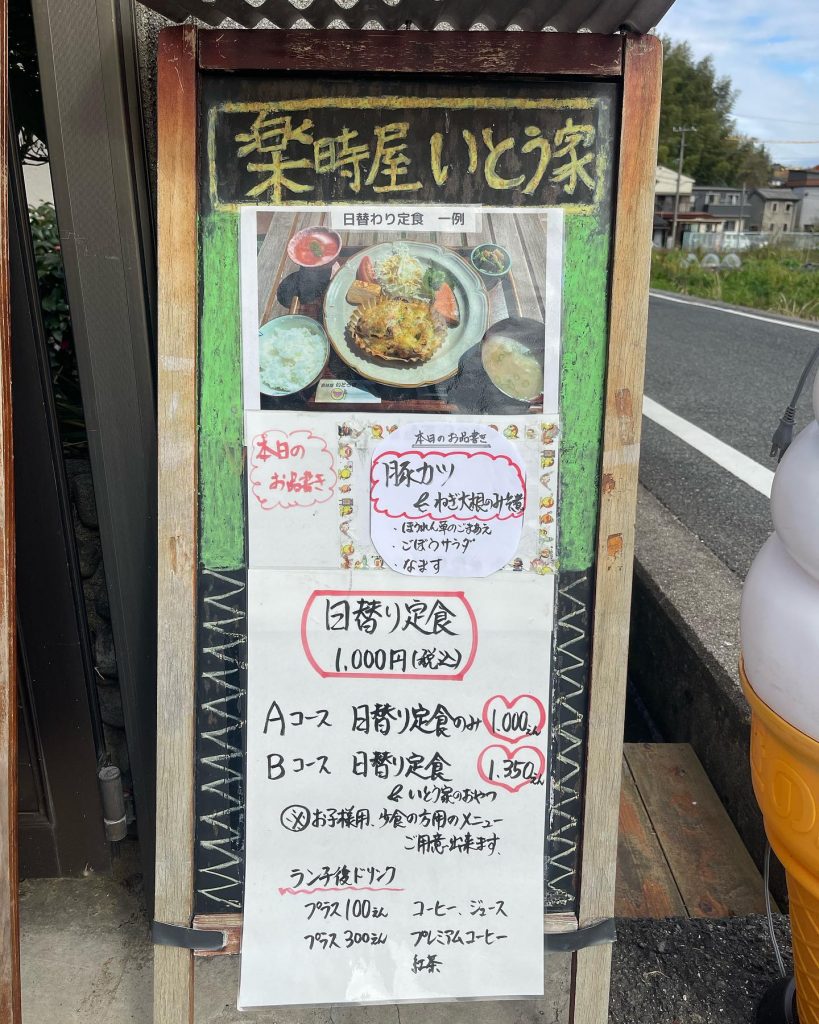 楽時屋 いとう家
日替わり定食 一例
本日の
お品書き
本日のお品書き
豚カツ
& ねぎ大根のみそ煮
・ほうれん草のごまあえ
・ごぼうサラダ
・なます
日替り定食
1,000円(税込)
Aコース 日替り定食のみ 1.000えん
Bコース 日替り定食 1.350えん
& いとう家のおやつ
※お子様用、少食の方用のメニュー
ご用意出来ます。
ランチ後ドリンク
プラス100えん コーヒー、ジュース
プラス300えん プレミアムコーヒー
紅茶